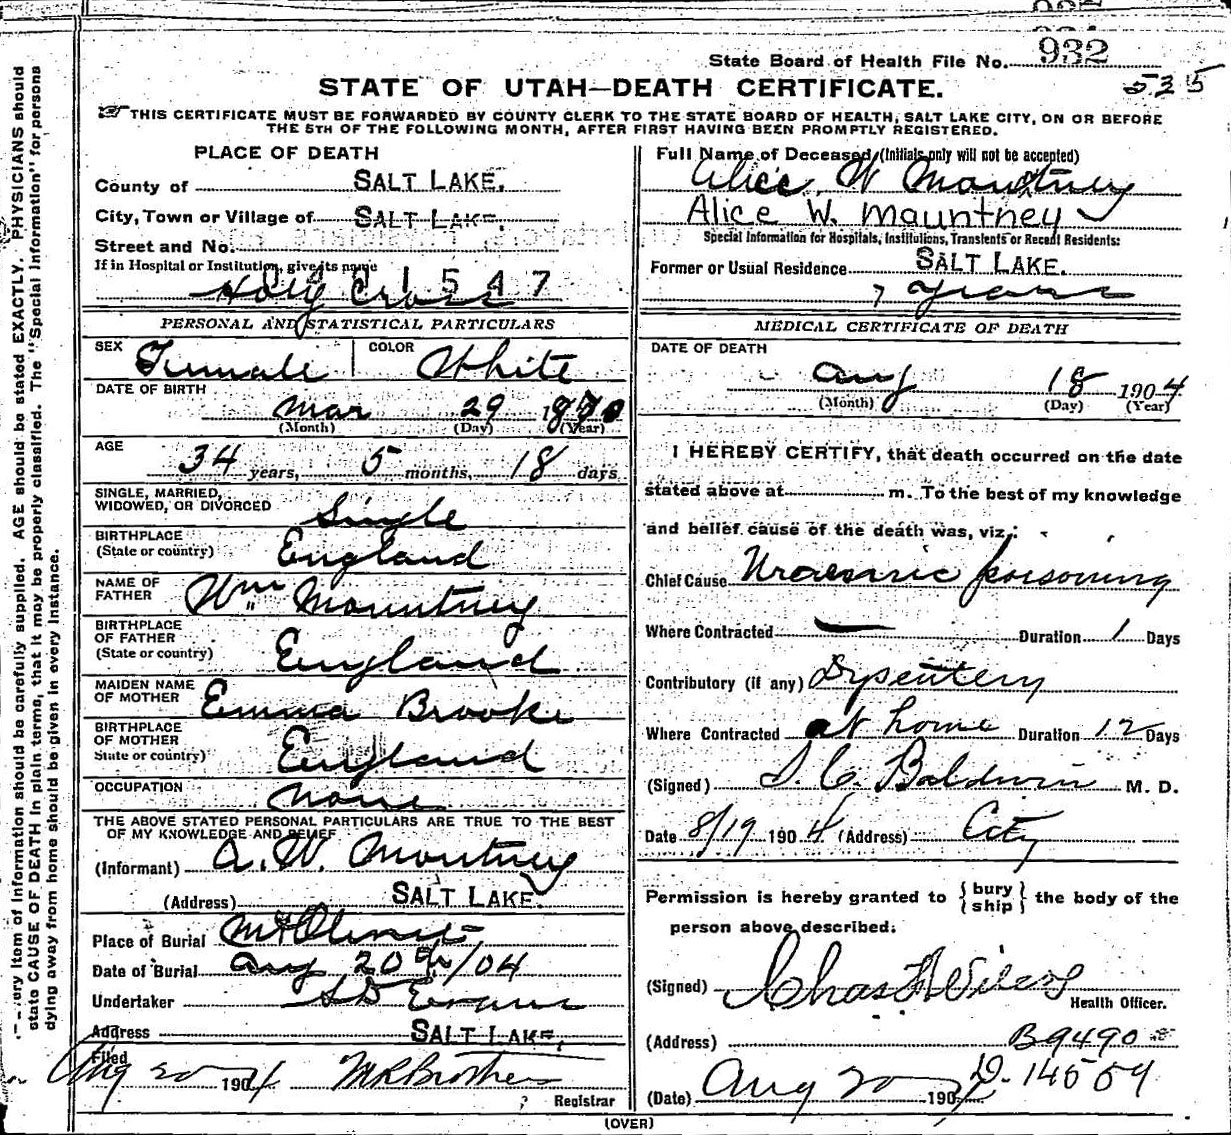 932
State Board of Health File No.
535
STATE OF UTAH—DEATH CERTIFICATE.
THIS CERTIFICATE MUST BE FORWARDED BY COUNTY CLERK TO THE STATE BOARD OF HEALTH, SALT LAKE CITY, ON OR BEFORE
THE 5TH OF THE FOLLOWING MONTH, AFTER FIRST HAVING BEEN PROMPTLY REGISTERED.
PLACE OF DEATH
County of SALT LAKE.
City, Town or Village of SALT LAKE.
Street and No.
If in Hospital or Institution, give its name
1547
Holy Cross
PERSONAL AND STATISTICAL PARTICULARS
SEX Female COLOR White
DATE OF BIRTH
Mar 29 1870
(Month) (Day) (Year)
AGE
34 years, 5 months, 18 days
SINGLE, MARRIED,
WIDOWED, OR DIVORCED Single
BIRTHPLACE
(State or country) England
NAME OF
FATHER Wm Mountney
BIRTHPLACE
OF FATHER
(State or country) England
MAIDEN NAME
OF MOTHER Emma Brooke
BIRTHPLACE
OF MOTHER
State or country) England
OCCUPATION None
THE ABOVE STATED PERSONAL PARTICULARS ARE TRUE TO THE BEST
OF MY KNOWLEDGE AND BELIEF
(Informant) A. W. Mountney
(Address) SALT LAKE.
Place of Burial Mt Olivet
Date of Burial Aug 20th/04
Undertaker S D Evans
Address SALT LAKE.
Filed
Aug 20 1904 M R Brothers
Registrar
Full Name of Deceased (Initials only will not be accepted)
Alice W Mauntney
Alice W. Mauntney
Special Information for Hospitals, Institutions, Transients or Recent Residents:
Former or Usual Residence SALT LAKE.
7 years
MEDICAL CERTIFICATE OF DEATH
DATE OF DEATH
Aug 18 1904
(Month) (Day) (Year)
I HEREBY CERTIFY, that death occurred on the date
stated above at m. To the best of my knowledge
and belief cause of the death was, viz.:
Chief Cause Uraemic poisoning
Where Contracted — Duration 1 Days
Contributory (if any) Dysentery
Where Contracted at home Duration 12 Days
(Signed) S. C. Baldwin M. D.
Date 8/19 1904 (Address) City
Permission is hereby granted to { bury ship } the body of the
person above described.
(Signed) Chas F Wilcox
Health Officer.
(Address) B9490
D. 14559
(Date) Aug 20 190
(OVER)
ery item of information should be carefully supplied. AGE should be stated EXACTLY. PHYSICIANS should
state CAUSE OF DEATH in plain terms, that it may be properly classified. The "Special Information" for persons
dying away from home should be given in every instance.